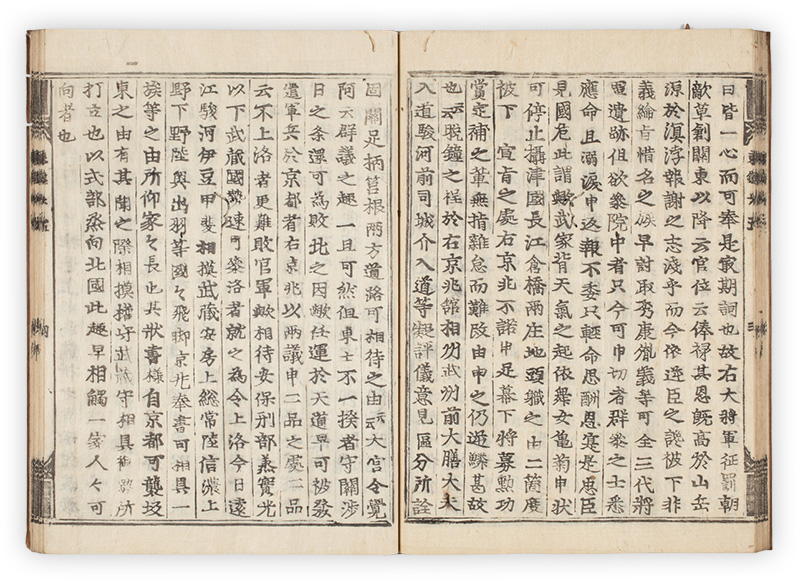 曰皆一心而可奉是最期詞也故右大將軍征罸朝
敵草創關東以降云官位云俸禄其恩既高於山岳
深於溟渤報謝之志淺乎而今依逆臣之讒被下非
義綸旨惜名之族早討取秀康胤義等可全三代將
軍遺跡但欲參院中者只今可申切者群參之士悉
應命且溺淚申返報不委只輕命思酬恩寔是忠臣
見國危此謂歟武家背天氣之起依舞女龜菊申狀
可停止攝津國長江倉橋兩庄地頭職之由二箇度
被下 宣旨之處右京兆不諾申是幕下將募勲功
賞定補之輩無指雜怠而難改由申之仍逆鱗甚故
也云云晩鐘之程於右京兆舘相州武州前大膳大夫
入道駿河前司城介入道等凝評儀意見區分所詮
固關足柄筥根兩方道路可相待之由云云大官令覺
阿云群議之趣一旦可然但東士不一揆者守關渉
日之条還可為敗北之因歟任運於天道早可被發
遣軍兵於京都者右京兆以兩議申二品之處二品
云不上洛者更難敗官軍歟相待安保刑部丞實光
以下武藏國勢速可參洛者就之為令上洛今日遠
江駿河伊豆甲斐相摸武藏安房上総常陸信濃上
野下野陸奥出羽等國々飛脚京兆奉書可相具一
族等之由所仰家々長也其狀書樣自京都可襲坂
東之由有其聞之際相摸權守武藏守相具御勢所
打立也以式部丞向北國此趣早相觸一家人々可
向者也